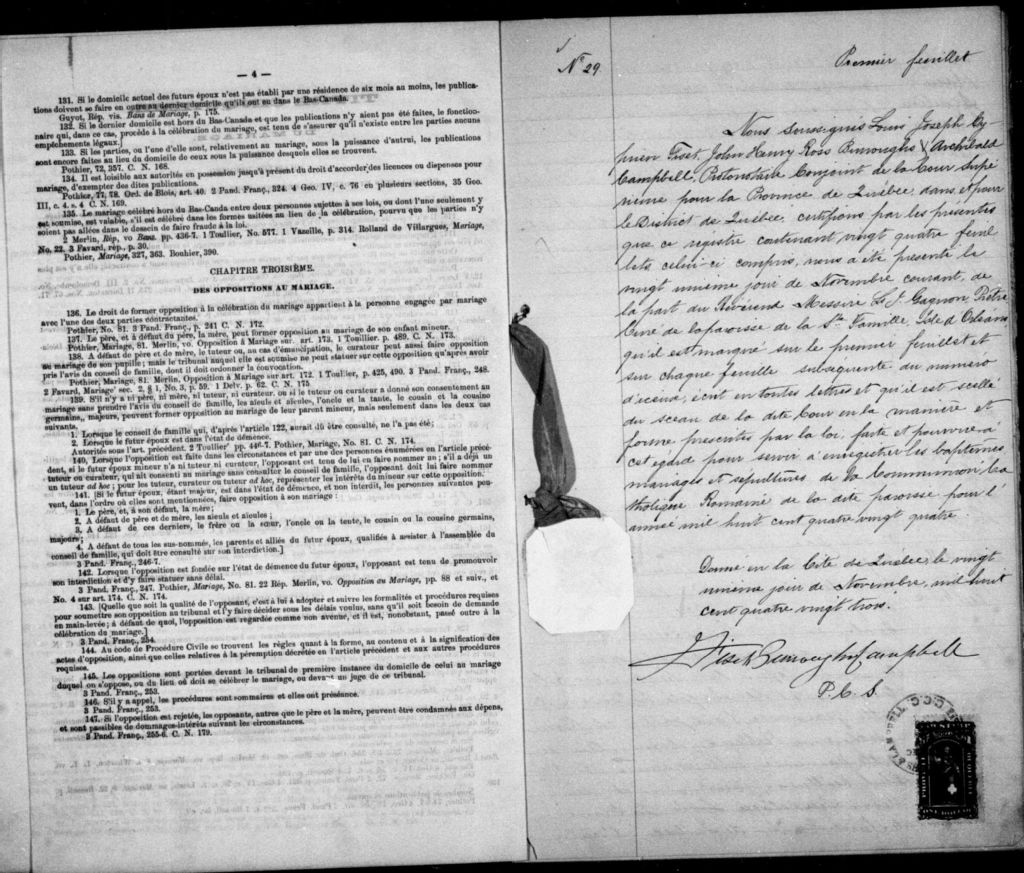 — 4 —
131. Si le domicile actuel des futurs époux n'est pas établi par une résidence de six mois au moins, les publica-
tions doivent se faire en outre au dernier domicile qu'ils ont eu dans le Bas-Canada.
Guyot, Rép. vis. Bans de Mariage, p. 175.
132. Si le dernier domicile est hors du Bas-Canada et que les publications n'y aient pas été faites, le fonction-
naire qui, dans ce cas, procède à la célébration du mariage, est tenu de s'assurer qu'il n'existe entre les parties aucuns
empêchements légaux.]
133. Si les parties, ou l'une d'elle sont, relativement au mariage, sous la puissance d'autrui, les publications
sont encore faites au lieu du domicile de ceux sous la puissance desquels elles se trouvent.
Pothier, 72, 357. C. N. 168.
134. Il est loisible aux autorités en possession jusqu'à présent du droit d'accorder des licences ou dispenses pour
mariage, d'exempter des dites publications.
Pothier, 77, 78. Ord. de Blois, art. 40. 2 Pand. Franç., 324. 4 Geo. IV, c. 76 en plusieurs sections, 35 Geo.
III, c. 4. s. 4 C. N. 169.
135. Le mariage célébré hors du Bas-Canda entre deux personnes sujettes à ses lois, ou dont l'une seulement y
est soumise, est valable, s'il est célébré dans les formes usitées au lieu de la célébration, pourvu que les parties n'y
soient pas allées dans le dessein de faire fraude à la loi.
2 Merlin, Rép, vo Bans. pp. 436-7. 1 Toullier, No. 577. 1 Vazeille, p. 314. Rolland de Villargues, Mariage,
No. 22. 3 Favard, rép., p. 30.
Pothier, Mariage, 327, 363. Bouhier, 390.
CHAPITRE TROISIÈME.
DES OPPOSITIONS AU MARIAGE.
136. Le droit de former opposition à la célébration du mariage appartient à la personne engagée par mariage
avec l'une des deux parties contractantes.
Pothier, No. 81. 3 Pand. Franç., p. 241 C. N. 172.
137. Le père, et à défaut du père, la mère, peut former opposition au mariage de son enfant mineur.
Pothier, Mariage, 81. Merlin, vo Opposition à Mariage sur. art. 173, 1 Toullier. p. 489. C. N. 173.
138. A défaut de père et de mère, le tuteur ou, au cas d'émancipation, le curateur peut aussi faire opposition
au mariage de son pupille; mais le tribunal auquel elle est soumise ne peut statuer sur cette opposition qu'après avoir
pris l'avis du conseil de famille, dont il doit ordonner la convocation.
Pothier, Mariage, 81. Merlin, Opposition à Mariage sur art. 172. 1 Toullier, p. 425, 490. 3 Pand. Franç., 248.
2 Favard, Mariage' sec. 2, § 1, No. 3, p. 59. 1 Delv. p. 62. C. N. 175
139. S'il n'y a ni père, ni mère, ni tuteur, ni curateur, ou si le tuteur ou curateur a donné son consentement au
mariage sans prendre l'avis du conseil de famille, les aïeuls et aïeules, l'oncle et la tante, le cousin et la cousine
germains, majeurs, peuvent former opposition au mariage de leur parent mineur, mais seulement dans les deux cas
suivants.
1. Lorsque le conseil de famille qui, d'après l'article 122, aurait dû être consulté, ne l'a pas été;
2. Lorsque le futur époux est dans l'état de démence.
Autorités sous l'art. précédent. 2 Toullier' pp. 446-7. Pothier, Mariage, No. 81. C. N. 174.
140. Lorsque l'opposition est faite dans les circonstances et par une des personnes énumérées en l'article précé-
dent, si le futur époux mineur n'a ni tuteur ni curateur, l'opposant est tenu de lui en faire nommer un; s'il a déjà un
tuteur ou curateur, qui ait consenti au mariage sans consulter le conseil de famille, l'opposant doit lui faire nommer
un tuteur ad hoc; pour les tuteur, curateur ou tuteur ad hoc, représenter les intérêts du mineur sur cette opposition.
141. [Si le futur époux, étant majeur, est dans l'état de démence, et non interdit, les personnes suivantes peu-
vent, dans l'ordre où elles sont mentionnées, faire opposition à son mariage:
1. Le père, et, à son défaut, la mère;
2. A défaut de père et de mère, les aïeuls et aïeules;
3. A défaut de ces derniers, le frère ou la sœur, l'oncle ou la tente, le cousin ou la cousine germains,
majeurs;
4. A défaut de tous les sus-nommés, les parents et alliés du futur époux, qualifiés à assister à l'assemblée du
conseil de famille, qui doit être consulté sur son interdiction.]
3 Pand. Franç., 246-7.
142. Lorsque l'opposition est fondée sur l'état de démence du futur époux, l'opposant est tenu de promouvoir
son interdiction et d'y faire statuer sans délai.
3 Pand. Franç., 247. Pothier, Mariage, No. 81. 22 Rép. Merlin, vo. Opposition au Mariage, pp. 88 et suiv., et
No. 4 sur art. 174. C. N. 174.
143. [Quelle que soit la qualité de l'opposant, c'est à lui à adopter et suivre les formalités et procédures requises
pour soumettre son opposition au tribunal et l'y faire décider sous les délais voulus, sans qu'il soit besoin de demande
en main-levée; à défaut de quoi, l'opposition est regardée comme non avenue, et il est, nonobstant, passé outre à la
célébration du mariage.]
3 Pand. Franç., 254.
144. Au code de Procédure Civile se trouvent les règles quant à la forme, au contenu et à la signification des
actes d'opposition, ainsi que celles relatives à la péremption décrétée en l'article précédent et aux autres procédures
requises.
145. Les oppositions sont portées devant le tribunal de première instance du domicile de celui au mariage
duquel on s'oppose, ou du lieu où doit se célébrer le mariage, ou devant un juge de ce tribunal.
3 Pand. Franç., 253.
146. S'il y a appel, les procédures sont sommaires et elles ont préséance.
3 Pand. Franç., 253.
147. Si l'opposition est rejetée, les opposants, autres que le père et la mère, peuvent être condamnés aux dépens,
et sont passibles de dommages-intérêts suivant les circonstances.
3 Pand. Franç., 255-6. C. N. 179.
No 29.
Premier feuillet
Nous soussignés Louis Joseph Cy-
prien Fiset, John Henry Ross Burroughs & Archibald
Campbell, Protonotaire Conjoint de la Cour Supé
rieure pour la Province de Québec, dans et pour
le District de Québec certifions par les présentes
que ce registre contenant vingt quatre feuil
lets celui-ci compris, nous a été présenté le
vingt unième jour de Novembre courant, de
la part du Révérend Messire Gagnon Prêtre
Curé de la paroisse de la Ste Famille Isle d'Orléans
qu'il est marqué sur le premier feuillet et
sur chaque feuille subséquente du numéro
d'iceux, écrit en toutes lettres et qu'il est scellé
du sceau de la dite Cour en la manière et
forme prescrites par la loi, faite et pourvue à
cet égard pour servir à enregistrer les baptêmes
mariages et sépultures de la Communion Ca
tholique Romaine de la dite paroisse pour l'
année mil huit cent quatre vingt quatre.
Donné en la Cité de Québec, le vingt
unième jour de Novembre, mil huit
cent quatre vingt trois.
Fiset Burroughs & Campbell
P. C. S.